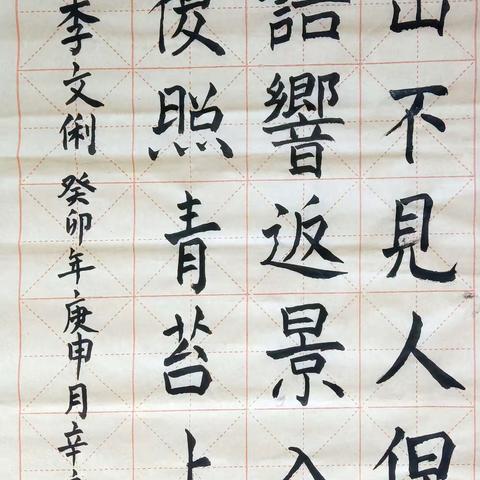 山不見人但
語響返景入
復照青苔上
李文俐 癸卯年庚申月辛